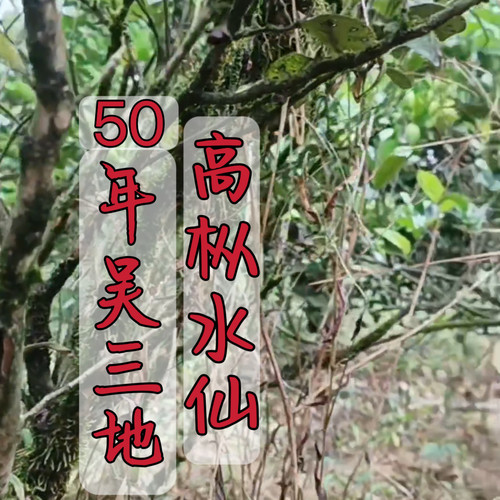 50年吴三地
高枞水仙